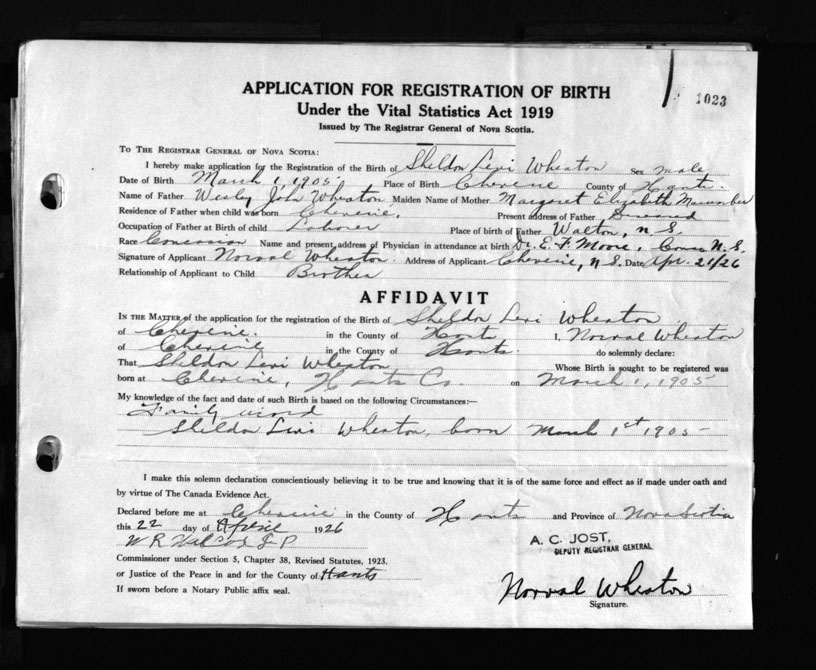 1023
APPLICATION FOR REGISTRATION OF BIRTH
Under the Vital Statistics Act 1919
Issued by The Registrar General of Nova Scotia.
To The Registrar General of Nova Scotia:
I hereby make application for the Registration of the Birth of Sheldon Levi Wheaton sex male
Date of Birth March 1, 1905 Place of Birth Cheverie County of Hants
Name of Father Wesley John Wheaton Maiden Name of Mother Margaret Elizabeth Macumber
Residence of Father when child was born Cheverie. Present address of Father Deceased
Occupation of Father at Birth of child Laborer Place of birth of Father Walton, N.S.
Race Name and present address of Physician in attendance at birth Dr. E. F. Moore, N.S.
Signature of Applicant Norval Wheaton. Address of Applicant Cheverie, N.S. Date Apr. 21/26
Relationship of Applicant to Child Brother
AFFIDAVIT
In the Matter of the application for the registration of the Birth of Sheldon Levi Wheaton
of Cheverie. in the County of Hants I, Norval Wheaton
of Cheverie in the County of Hants. do solemnly declare:
That Sheldon Levi Wheaton Whose Birth is sought to be registered was
born at Cheverie, Hants Co. on March 1, 1905
My knowledge of the fact and date of such Birth is based on the following Circumstances:—
Family
Sheldon Levi Wheaton, born March 1st 1905
I make this solemn declaration conscientiously believing it to be true and knowing that it is of the same force and effect as if made under oath and
by virtue of The Canada Evidence Act.
Declared before me at Cheverie in the County of Hants and Province of Nova Scotia
this 22 day of 1926
W R J P
A. C. JOST,
DEPUTY REGISTRAR GENERAL
Commissioner under Section 5, Chapter 38, Revised Statutes, 1923.
or Justice of the Peace in and for the County of Hants
If sworn before a Notary Public affix seal.
Norval Wheaton
Signature.